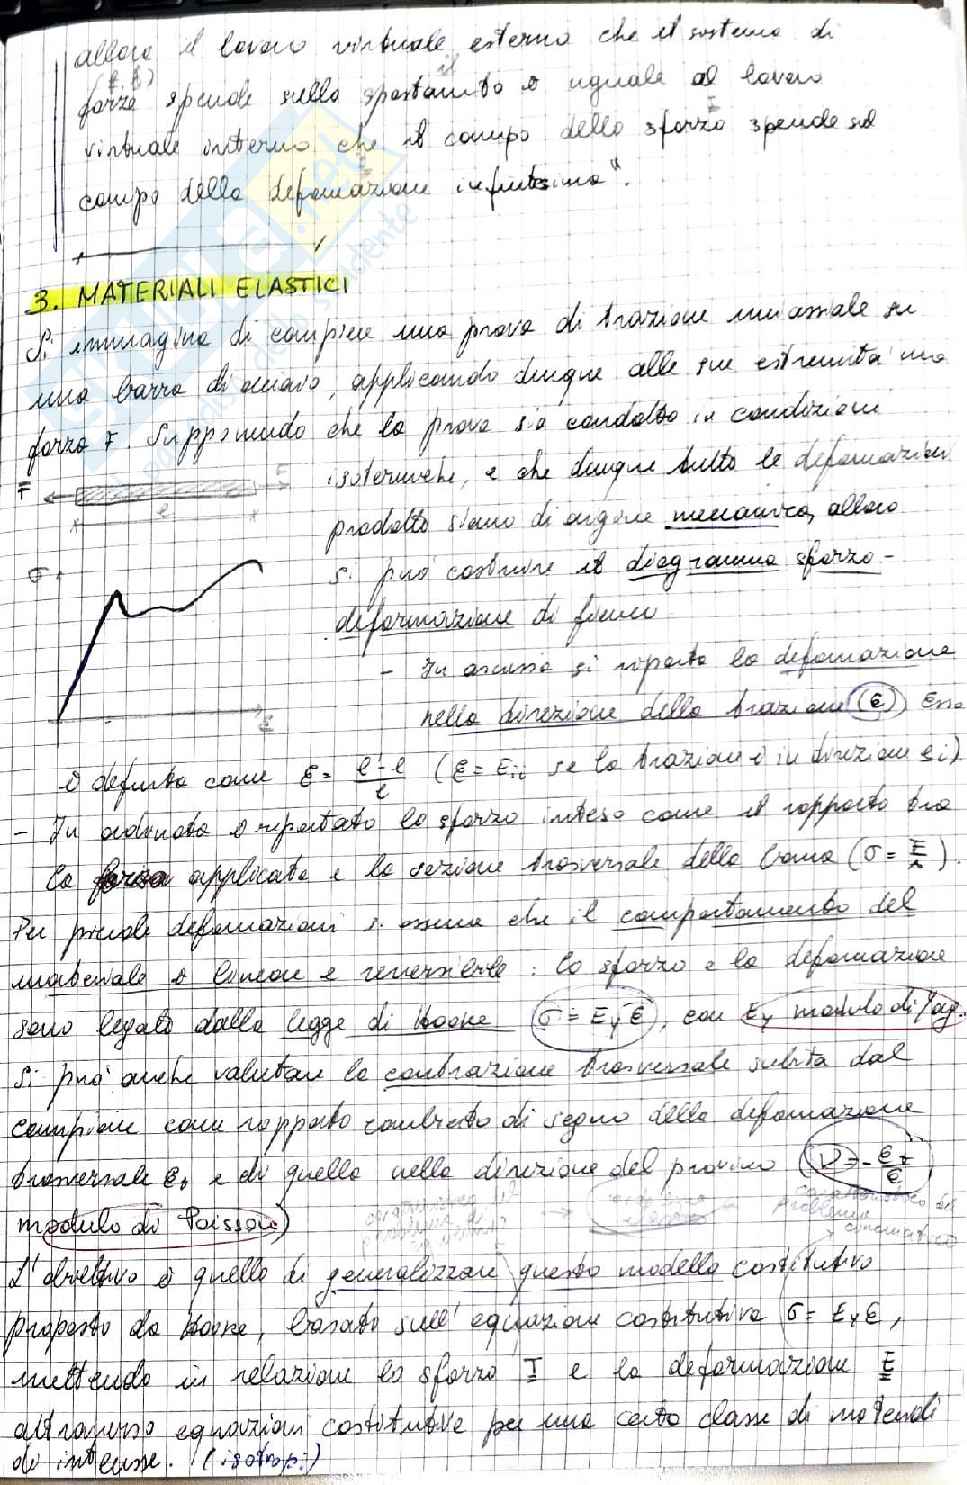 allora il lavoro virtuale esterno che il sistema di
forze spende sullo spostamento è uguale al lavoro
virtuale interno che il campo dello sforzo spende sul
campo della deformazione infinitesima".
3. MATERIALI ELASTICI
Si immagina di compiere una prova di trazione uniassiale su
una barra di acciaio, applicando dunque alle sue estremità una
forza F. Supponendo che la prova sia condotta in condizioni
isotermiche, e che dunque tutte le deformazioni
F F
l
prodotte siano di origine meccanica, allora
σ si può costruire il diagramma sforzo-
deformazione di fianco
- In ascissa si riporta la deformazione
nella direzione della trazione (ε) Essa
ε
è definita come ε = l'-l / l (ε = εii se la trazione è in direzione ei)
- In ordinata è riportato lo sforzo inteso come il rapporto tra
la forza applicata e la sezione trasversale della barra (σ = F/A).
Per piccole deformazioni si assume che il comportamento del
materiale è lineare e reversibile: lo sforzo e la deformazione
sono legate dalla legge di Hooke σ = Ey ε, con Ey modulo di Yog.
Si può anche valutare la contrazione trasversale subita dal
campione come rapporto cambiato di segno della deformazione
trasversale εt e di quella nella direzione del provino (ν = - εT/ε
modulo di Poisson)
problema
cinematico
L'obiettivo è quello di generalizzare questo modello costitutivo
proposto da Hooke, basato sull'equazione costitutiva σ = Ey ε,
mettendo in relazione lo sforzo T e la deformazione E
attraverso equazioni costitutive per una certa classe di materiali
di interesse. (isotropi)